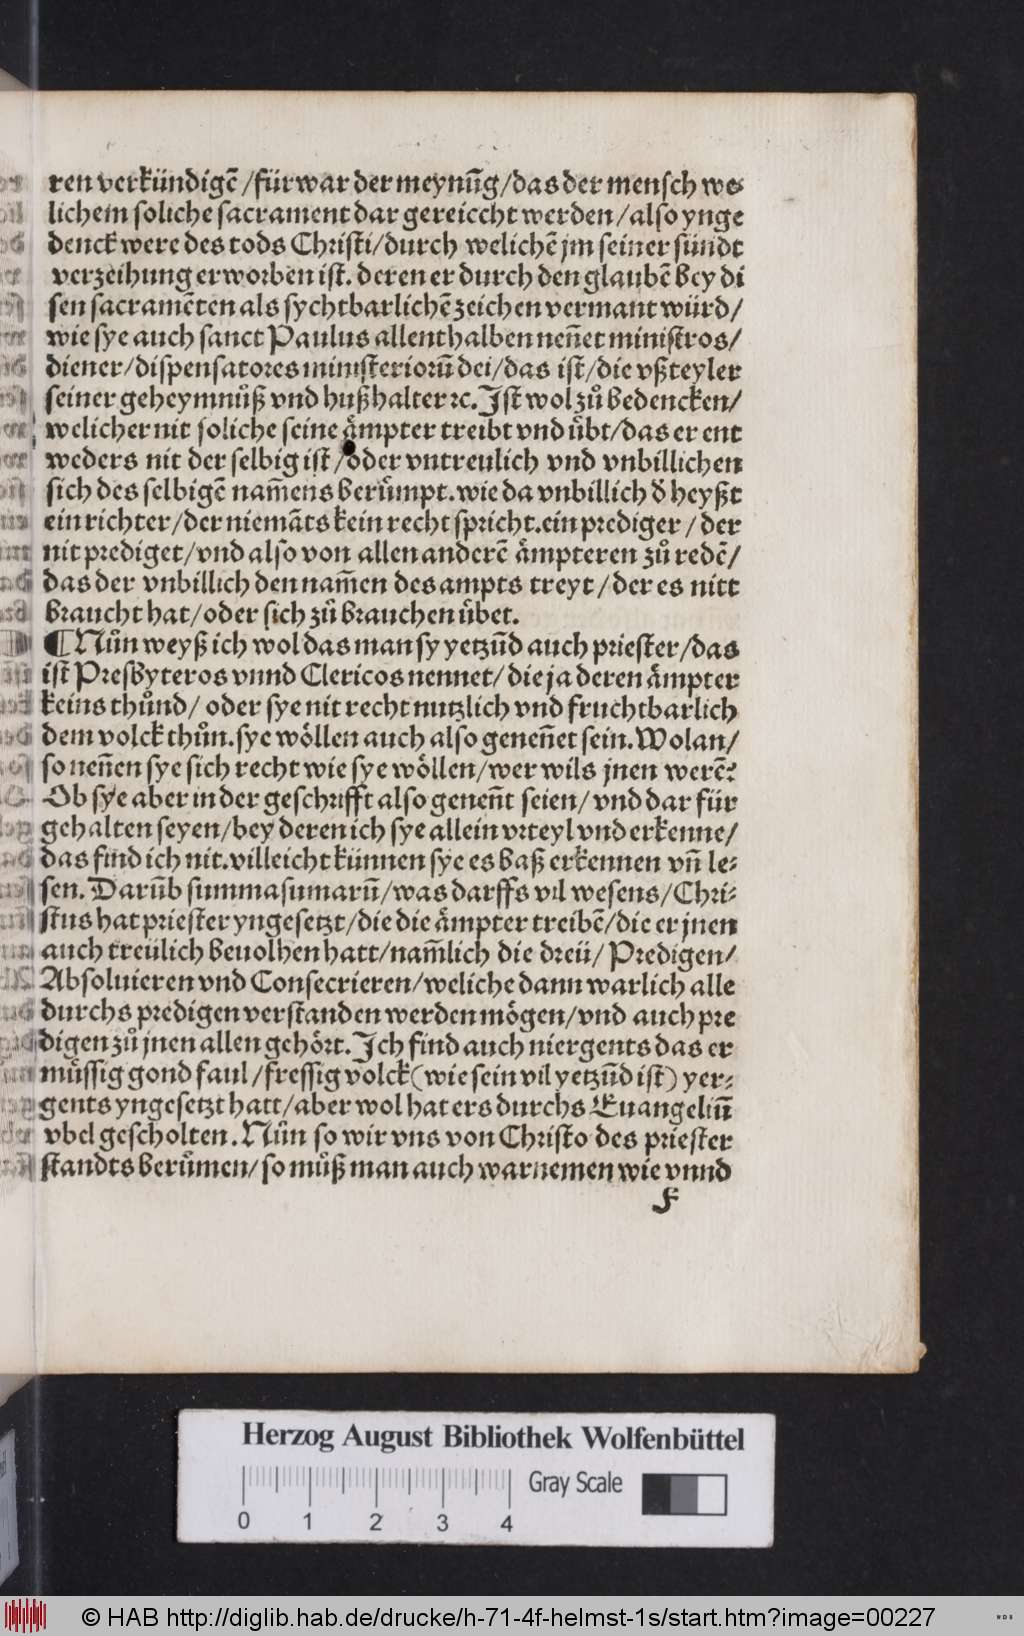 ren verkündigẽ /für war der meynũg/das der mensch we⸗
lichem soliche sacrament dar gereiccht werden/also ynge
denck were des tods Christi/durch welichẽ jm seiner sündt
verzeihung erworben ist. deren er durch den glaubẽ bey di
sen sacramẽten als sychtbarlichẽ zeichen vermant würd/
wie sye auch sanct Paulus allenthalben neñet ministros/
diener/dispensatores ministeriorũ dei/das ist/die vßteyler
seiner geheymnůß vnd hußhalter ꝛc. Ist wol zů bedencken/
welicher nit soliche seine ämpter treibt vnd übt/das er ent
weders nit der selbig ist /oder vntreulich vnd vnbillichen
sich des selbigẽ nam̃ens berůmpt. wie da vnbillich d̕ heyßt
ein richter/der niemãts kein recht spricht. ein prediger / der
nit prediget/vnd also von allen anderẽ ämpteren zů redẽ/
das der vnbillich den nam̃en des ampts treyt / der es nitt
braucht hat/oder sich zů brauchen übet.
¶ Nůn weyß ich wol das man sy yetzũd auch priester/das
ist Presbyteros vnnd Clericos nennet/die ja deren ämpter
keins thůnd/ oder sye nit recht nutzlich vnd fruchtbarlich
dem volck thůn. sye wöllen auch also geneñet sein. Wolan/
so neñen sye sich recht wie sye wöllen/wer wils jnen werẽ?
Ob sye aber in der geschrifft also geneñt seien/ vnd dar für
gehalten seyen/bey deren ich sye allein vrteyl vnd erkenne/
das find ich nit. villeicht künnen sye es baß erkennen vñ le⸗
sen. Darũb summa sumarũ/was darffs vil wesens/Chri⸗
stus hat priester yngesetzt/die die ämpter treibẽ/die er jnen
auch treülich beuolhen hatt/nam̃lich die dreü/ Predigen/
Absoluieren vnd Consecrieren/weliche dann warlich alle
durchs predigen verstanden werden mögen/vnd auch pre
digen zů jnen allen gehört. Ich find auch niergents das er
müssig gond faul /fressig volck (wie sein vil yetzũd ist) yer⸗
gents yngesetzt hatt/aber wol hat ers durchs Euangeliũ
vbel gescholten. Nůn so wir vns von Christo des priester
standts berůmen/so můß man auch warnemen wie vnnd
F
Herzog August Bibliothek Wolfenbüttel
Gray Scale
0 1 2 3 4
© HAB http://diglib.hab.de/drucke/h-71-4f-helmst-1s/start.htm?image=00227